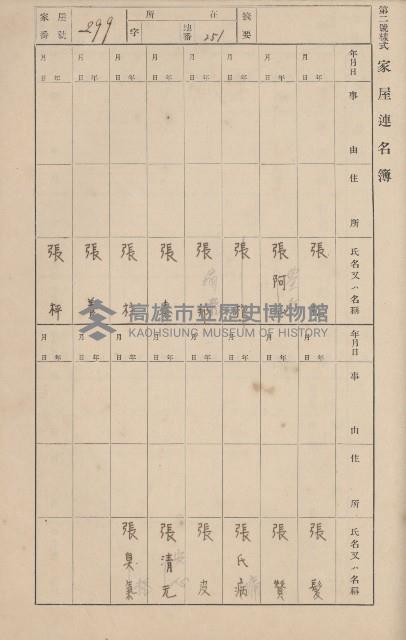 第二號樣式
家屋連名簿
摘要
所在
地番 251
字
家屋番號 299
年月日
事由
住所
氏名又ハ名稱
年月日
年月日
年月日
年月日
年月日
年月日
年月日
年月日
張
張阿
張
張
張
張
張
張秤
年月日
事由
住所
氏名又ハ名稱
年月日
年月日
年月日
年月日
年月日
年月日
年月日
年月日
張髮
張贊
張氏病
張皮
張清元
張臭氣
高雄市立歷史博物館
KAOHSIUNG MUSEUM OF HISTORY